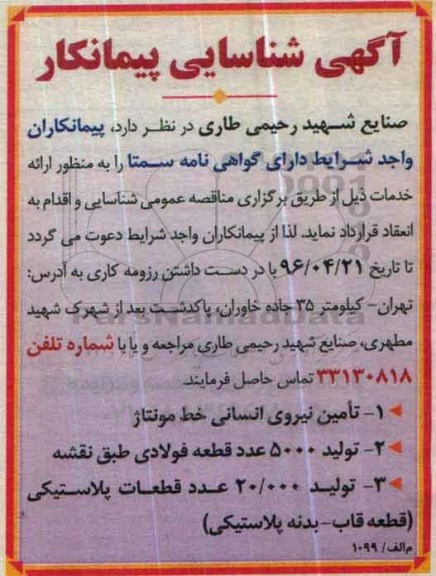 آگهی شناسایی پیمانکار
صنایع شهید رحیمی طاری در نظر دارد، پیمانکاران
واجد شرایط دارای گواهی نامه سمتا را به منظور ارائه
خدمات ذیل از طریق برگزاری مناقصه عمومی شناسایی و اقدام به
انعقاد قرارداد نماید. لذا از پیمانکاران واجد شرایط دعوت می گردد
تا تاریخ ۹۶/۰۴/۲۱ با در دست داشتن رزومه کاری به آدرس:
تهران- کیلومتر ۳۵ جاده خاوران، پاکدشت بعد از شهرک شهید
مطهری، صنایع شهید رحیمی طاری مراجعه و یا با شماره تلفن
۳۳۱۳۰۸۱۸ تماس حاصل فرمایند.
۱- تأمین نیروی انسانی خط مونتاژ
۲- تولید ۵۰۰۰ عدد قطعه فولادی طبق نقشه
۳- تولید ۲۰/۰۰۰ عدد قطعات پلاستیکی
(قطعه قاب-بدنه پلاستیکی)
م الف/ ۱۰۹۹
ParsNamadData